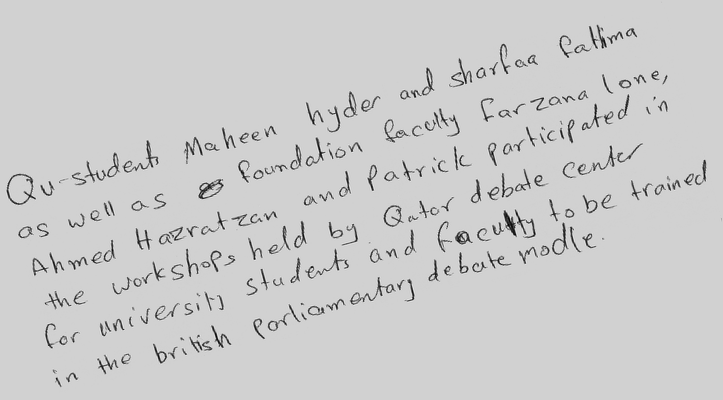 Qu-students Maheen hyder and sharfaa fatima
as well as foundation faculty farzana lone,
Ahmed Hazratzan and Patrick participated in
the workshops held by Qator debate center
for university students and faculty to be trained
in the british parliamentary debate modle.